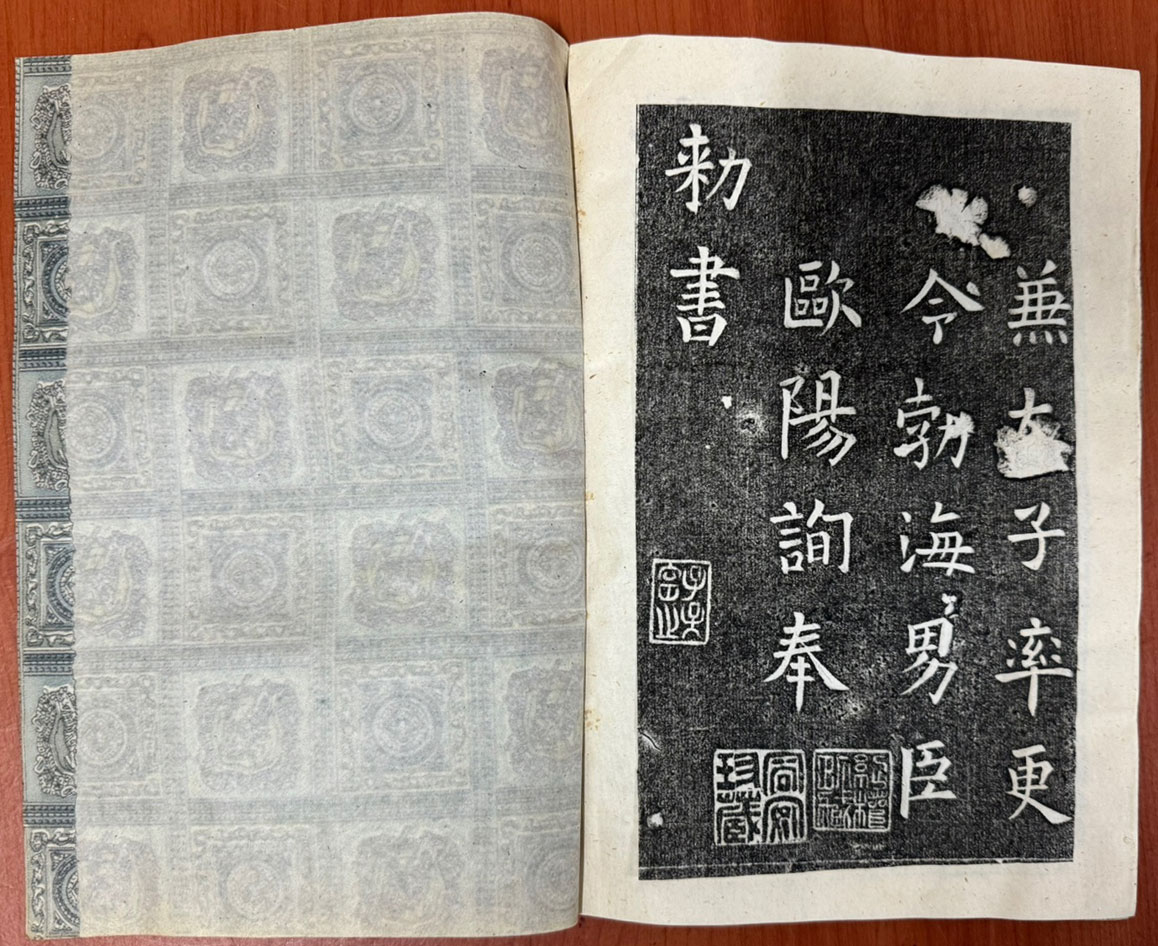 兼太子率更
令勃海男臣
歐陽詢奉
勑書
珍藏